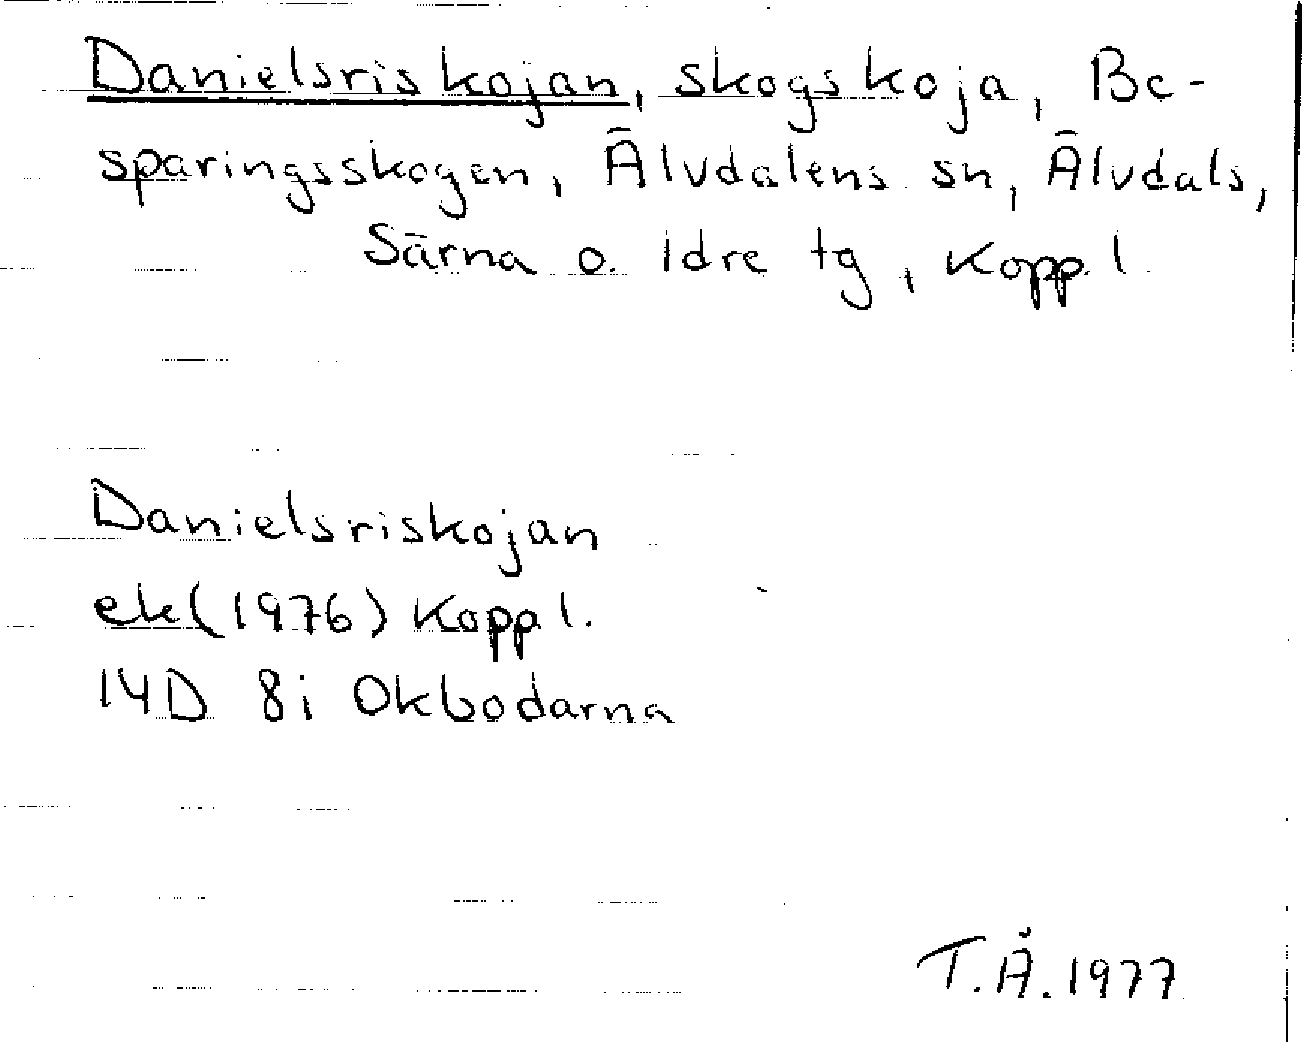 Danielsriskojan, skogskoja, Be-
sparingsskogen, Älvdalens sn, Älvdals,
Särna o. Idre tg, Kopp. l.
Danielsriskojan
ek (1976) Kopp. l.
14D 8i Okbodarna
T.Å. 1977